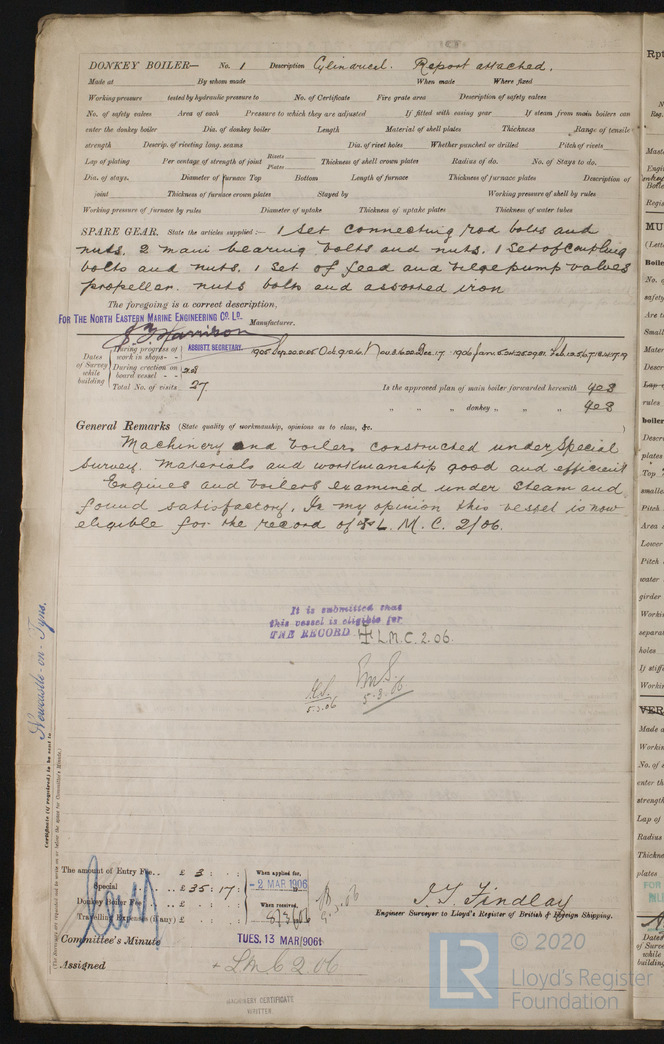 DONKEY BOILER— No. 1 Description Cylindrical. Report attached.
Made at By whom made When made Where fixed
Working pressure tested by hydraulic pressure to No. of Certificate Fire grate area Description of safety valves
No. of safety valves Area of each Pressure to which they are adjusted If fitted with easing gear If steam from main boilers can
enter the donkey boiler Dia. of donkey boiler Length Material of shell plates Thickness Range of tensile
strength Descrip. of riveting long. seams Dia. of rivet holes Whether punched or drilled Pitch of rivets
Lap of plating Per centage of strength of joint Rivets Plates Thickness of shell crown plates Radius of do. No. of Stays to do.
Dia. of stays. Diameter of furnace Top Bottom Length of furnace Thickness of furnace plates Description of
joint Thickness of furnace crown plates Stayed by Working pressure of shell by rules
Working pressure of furnace by rules Diameter of uptake Thickness of uptake plates Thickness of water tubes
SPARE GEAR. State the articles supplied:— 1 Set connecting rod bolts and
nuts. 2 main bearing bolts and nuts. 1 Set of coupling
bolts and nuts. 1 set of feed and bilge pump valves
propeller. nuts bolts and assorted iron
The foregoing is a correct description,
FOR THE NORTH EASTERN MARINE ENGINEERING CO. LD. Manufacturer.
Harrison
ASSISTT. SECRETARY.
Dates of Survey while building
During progress of work in shops - -
During erection on board vessel - - -
Total No. of visits 27
Is the approved plan of main boiler forwarded herewith yes
" " " donkey " " " yes
General Remarks (State quality of workmanship, opinions as to class, &c.)
Machinery and boilers constructed under Special
Survey. Materials and workmanship good and efficient
Engines and boilers examined under steam and
found satisfactory. In my opinion this vessel is now
eligible for the record of L. M. C. 2/06.
It is submitted that
this vessel is eligible for
THE RECORD + L.M.C. 2.06.
5.3.06
5.3.06
Newcastle-on-Tyne.
Certificate (if required) to be sent to
The amount of Entry Fee.. £ 3 : :
Special .. £ 35 : 17 :
Donkey Boiler Fee .. £ : :
Travelling Expenses (if any) £ : :
When applied for,
- 2 MAR 1906
When received,
8/3/06
J. T. Findlay
Engineer Surveyor to Lloyd's Register of British & Foreign Shipping.
Committee's Minute TUES. 13 MAR 1906
Assigned + LMC 2.06
MACHINERY CERTIFICATE
WRITTEN.
LR © 2020
Lloyd's Register
Foundation